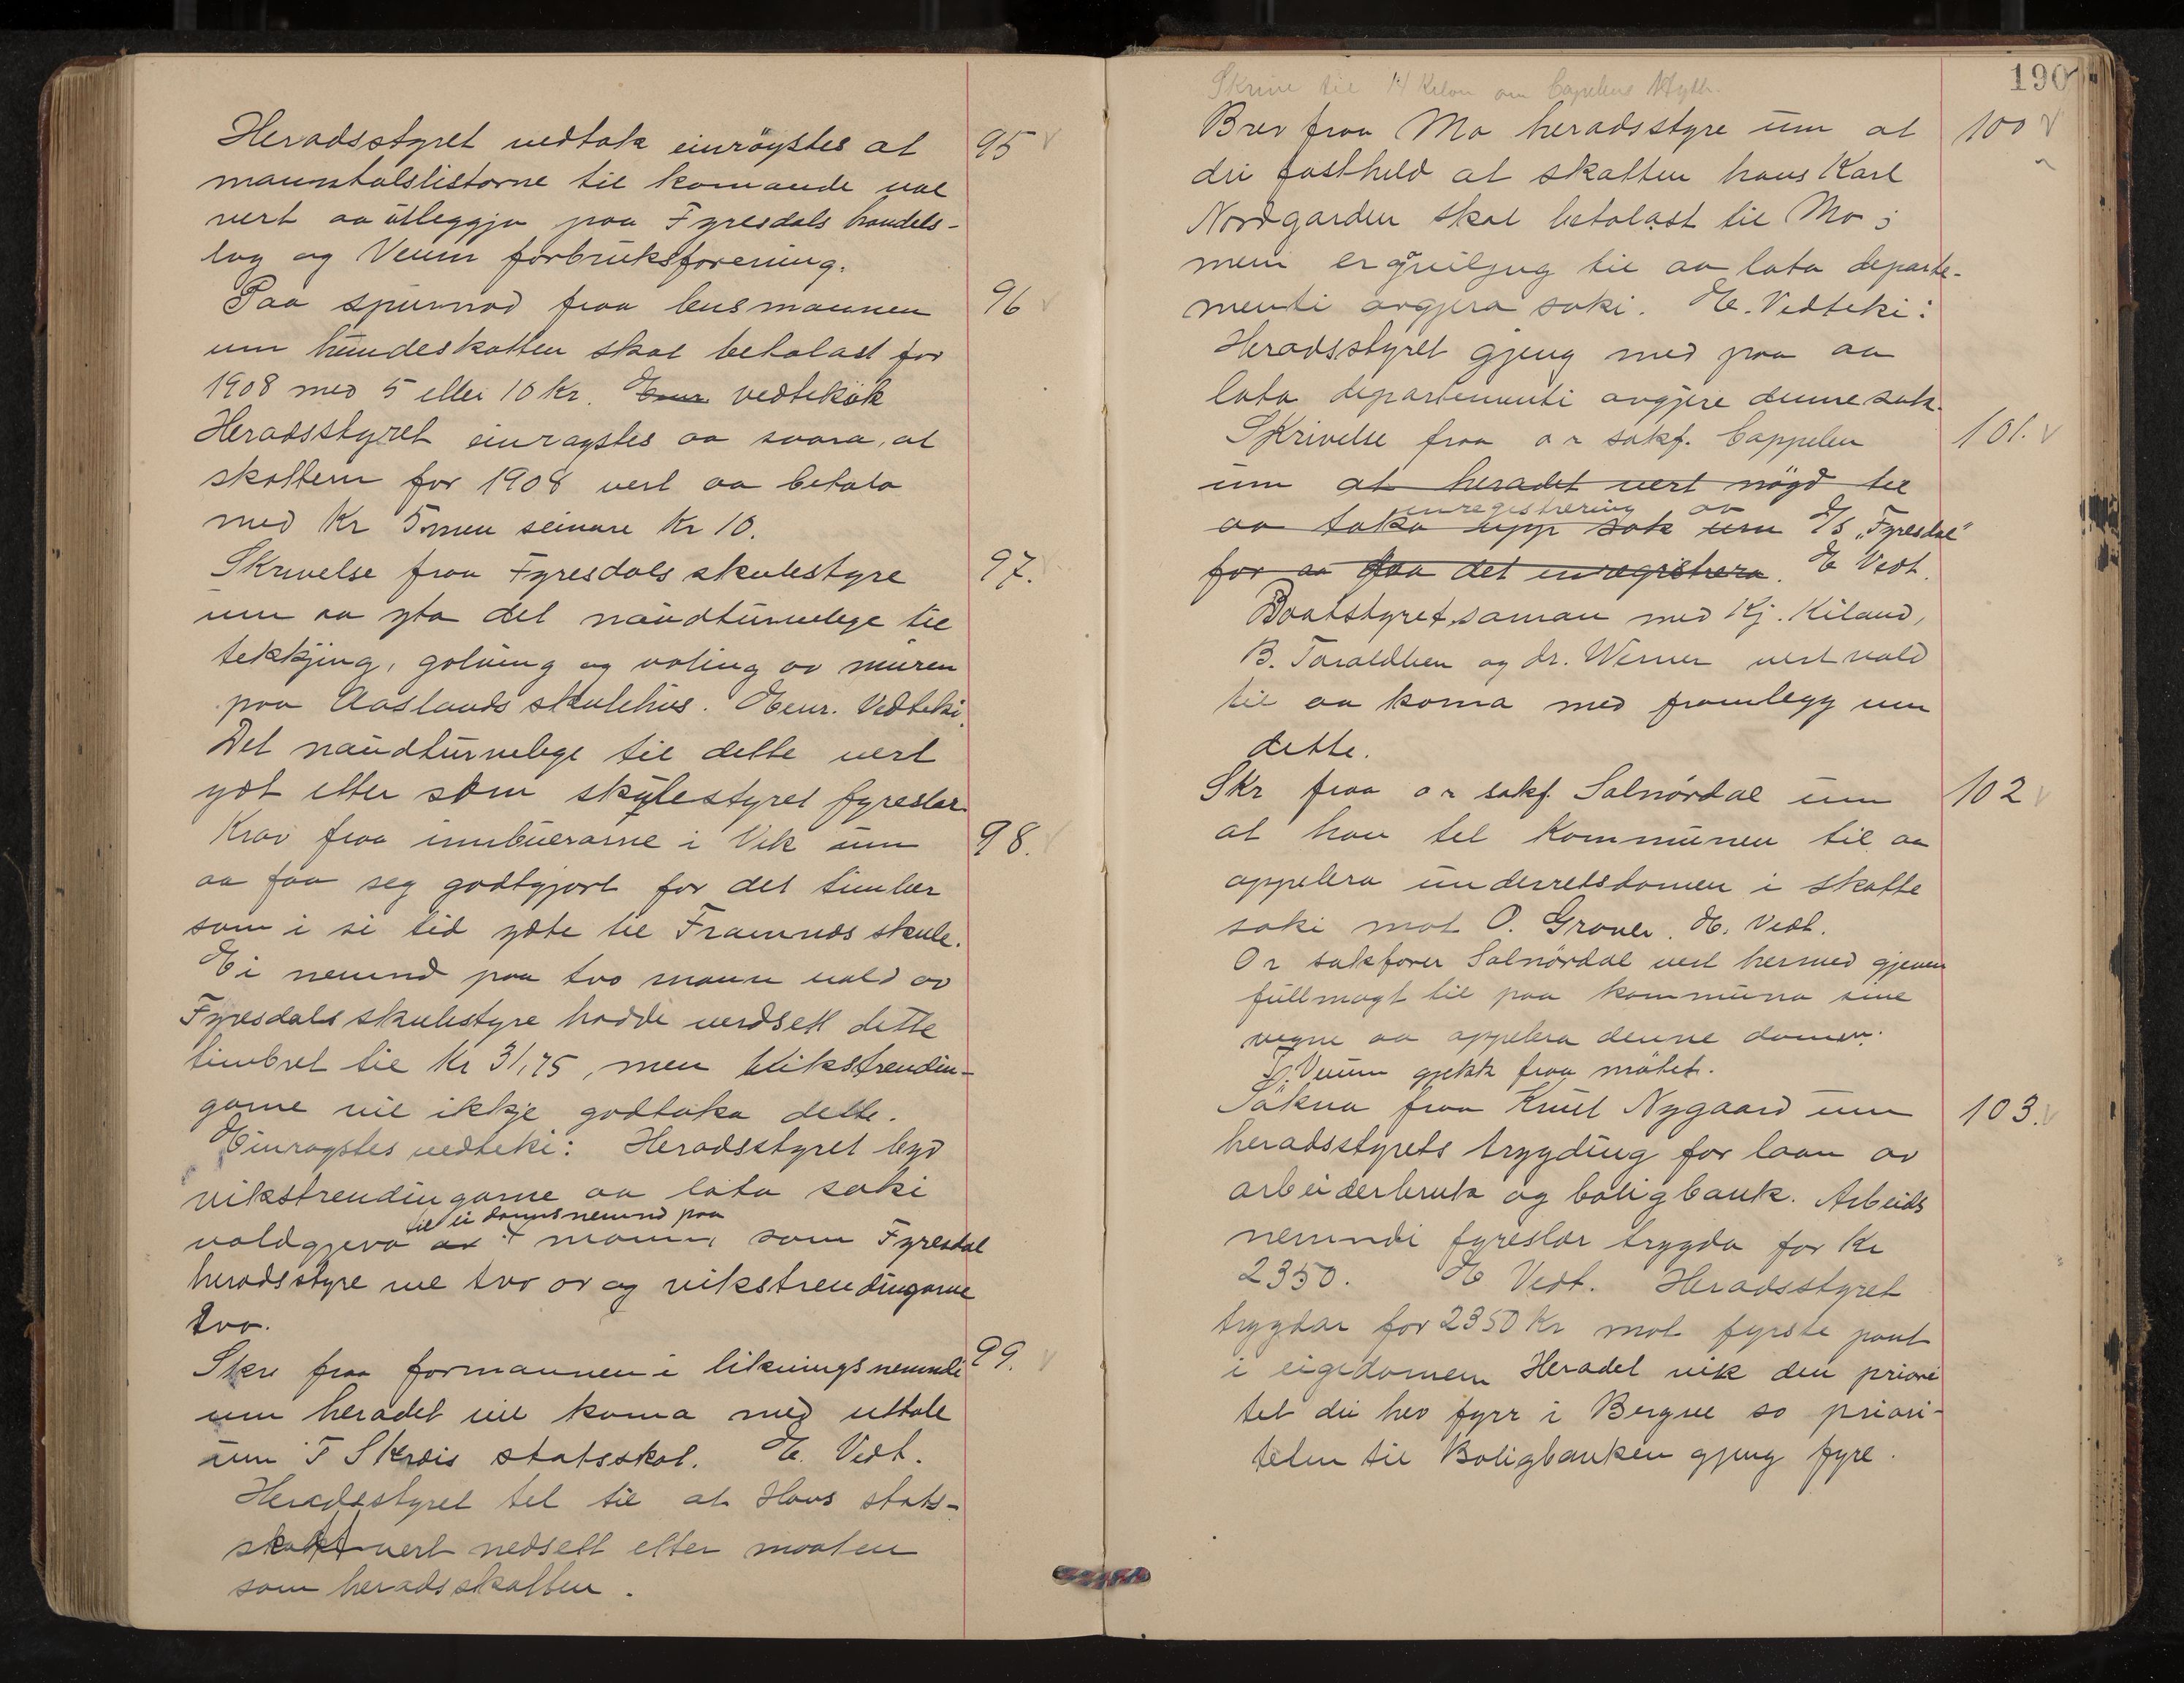 Heradsstyret vedtok einröystes at 95
manntalslistorne til komande val
vert aa utleggja paa Fyresdals handels-
lag og Veum forbruksforening.
Paa spurnad fraa lensmannen 96
um hundeskatten skal betalast for
1908 med 5 eller 10 kr. Einr. vedtekök
Heradsstyret einrøystes aa svara, at
skatten for 1908 vert aa betala
med Kr 5 men seinare Kr 10.
Skrivelse fraa Fyresdals skulestyre 97.
um aa yta det naudturvelege til
tekkjing, golving og voling av muren
paa Aaslands skulehus. Einr. Vedteki.
Det naudturvelege til dette vert
ydt etter som skulestyret fyreslær.
Krav fraa innbuerarne i Vik um 98.
aa faa seg godtgjort for det timber
som i si tid ydte til Framnes skule.
Ei nemnd paa tvo mann vald av
Fyresdals skulestyre hadde verdsett dette
timbret til Kr 31,75, men Vikstrendin-
garne vil ikkje godtaka dette.
Einrøystes vedteki: Heradsstyret byd
vikstrendingarne aa lata saki
til ei domsnemnd paa
valdgjeva av 4 mann, som Fyresdal
heradsstyre vel tvo av og vikstrendingarne
tvo.
Skr fraa formannen i likningsnemndi 99.
um heradet vil koma med uttale
um T Skreis statsskat. E. Vedt.
Heradsstyret tel til at Hans stats-
skatt vert nedsett etter maaten
som heradsskatten.
190
Skrive til
Brev fraa Mo heradsstyre um at 100
dei fastheld at skatten hans Karl
Nordgarden skal betalast til Mo;
men er og viljug til aa lata departe-
menti avgjera saki. E. Vedteki:
Heradsstyret gjeng med paa aa
lata departementi avgjere denne sak.
Skrivelse fraa o r sakf. Cappelen 101.
um at heradet vert nögd til
inregistrering av
aa taka upp sak um D/S "Fyresdal"
for aa faa det inregistrera. E Vedt.
Baatstyret saman med Kj. Kiland,
B. Taraldlien og dr. Werner vert vald
til aa koma med framlegg um
dette.
Skr fraa o r sakf. Salnördal um 102
at han tel Kommunen til aa
appelera underretsdomen i skatte
saki mot O. Graver. E. Vedt.
O r sakförer Salnördal vert hermed gjeven
fullmagt til paa kommuna sine
vegne aa appelera denne domen.
T. Veum gjekk fraa mötet.
Søknad fraa Knut Nygaard um 103.
heradsstyrets trygding for laan av
arbeiderbruk og boligbank. Arbeids
nemndi fyreslær trygda for Kr
2350. E Vedt. Heradsstyret
trygdar for 2350 Kr mot fyrste pant
i eigedomen Heradet vik den priori
tet dei hev fyrr i Bergne so priori-
teten til Boligbanken gjeng fyre.